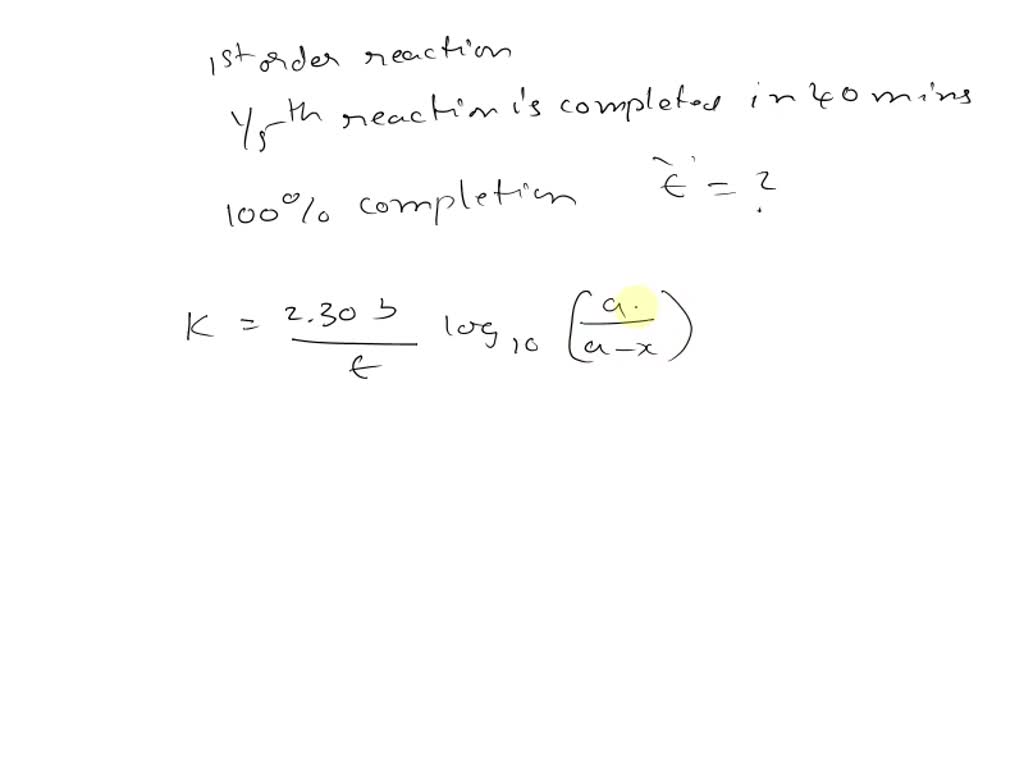 1st order reaction
1/5th reaction is completed in 40 mins
100% completion t = ?
K = 2.303/t log10 (a/a-x)